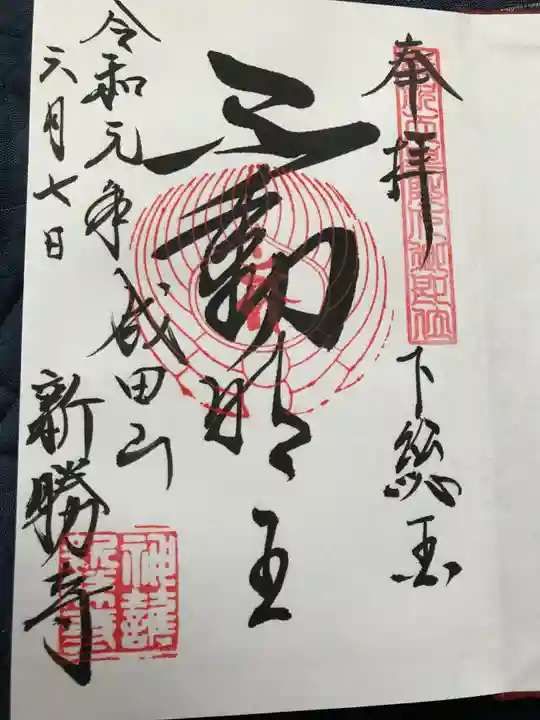 奉拝
下総国
不動明王
成田山
新勝寺
令和元年
六月七日